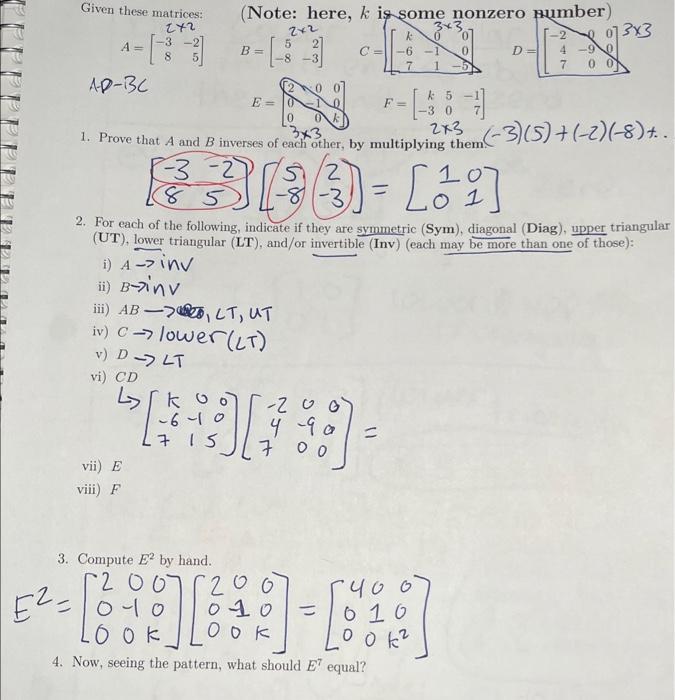 Given these matrices: (Note: here, k is some nonzero number)
2×2 2×2 3×3 3×3
A = [-3 -2 B = [5 2 C = [k 0 0 D = [-2 0 0
8 5] -8 -3] -6 -1 0 4 -9 0
7 1 -5] 7 0 0]
AD-BC
E = [2 0 0 F = [k 5 -1
0 -1 0 -3 0 7]
0 0 k]
3×3 2×3 (-3)(5)+(-2)(-8)+..
1. Prove that A and B inverses of each other, by multiplying them.
[-3 -2 [5 2 = [1 0
8 5] -8 -3] 0 1]
2. For each of the following, indicate if they are symmetric (Sym), diagonal (Diag), upper triangular
(UT), lower triangular (LT), and/or invertible (Inv) (each may be more than one of those):
i) A → inv
ii) B → inv
iii) AB → , LT, UT
iv) C → lower (LT)
v) D → LT
vi) CD
↳ [k 0 0 [-2 0 0 =
-6 -1 0 4 -9 0
7 1 5] 7 0 0]
vii) E
viii) F
3. Compute E² by hand.
E² = [2 0 0 [2 0 0 = [4 0 0
0 -1 0 0 -1 0 0 1 0
0 0 k] 0 0 k] 0 0 k²]
4. Now, seeing the pattern, what should E⁷ equal?